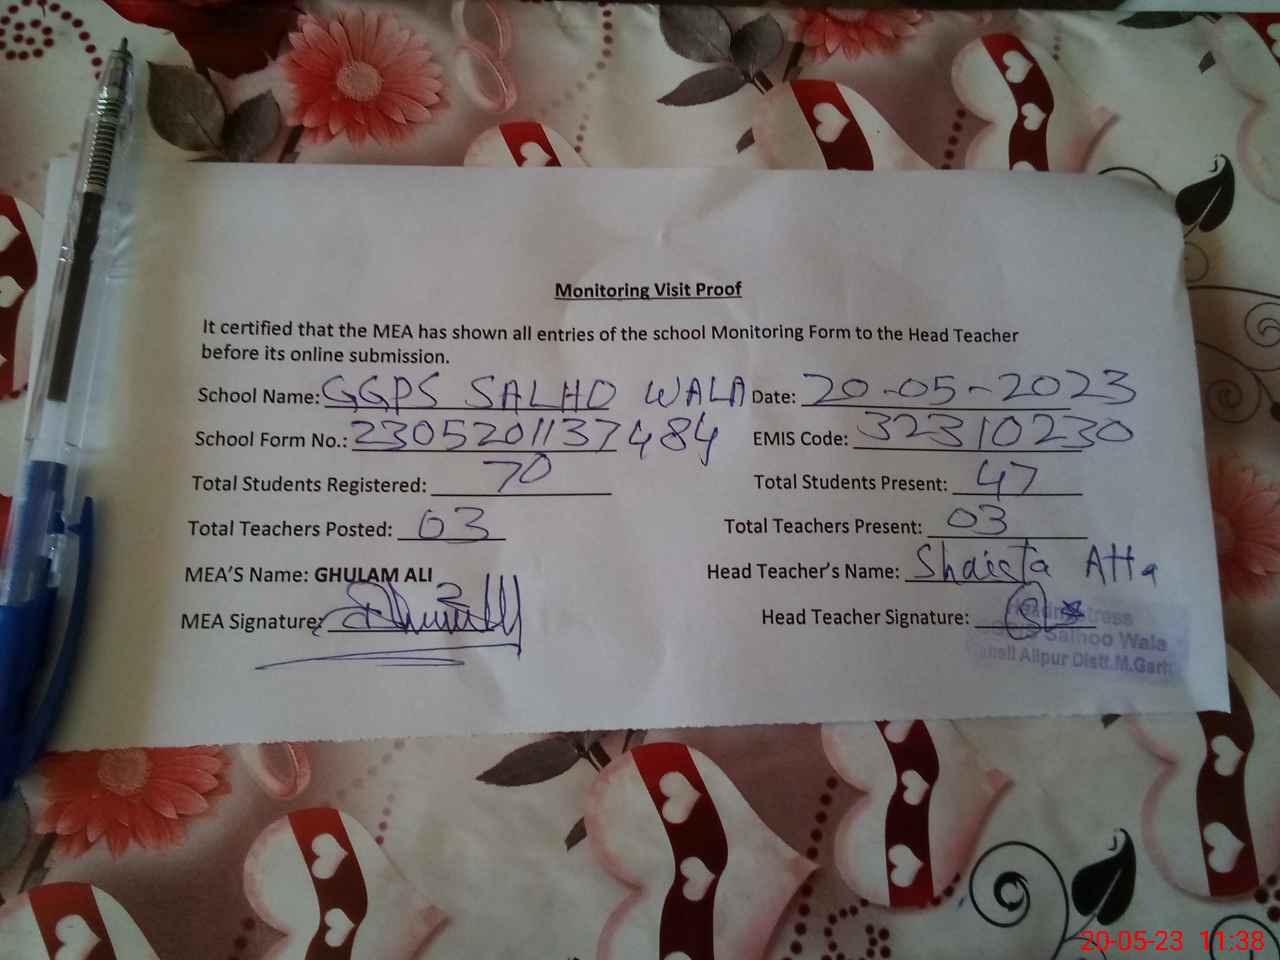 Monitoring Visit Proof
It certified that the MEA has shown all entries of the school Monitoring Form to the Head Teacher
before its online submission.
School Name: GGPS SALHO WALA Date: 20-05-2023
School Form No.: 2305201137484 EMIS Code: 32310230
Total Students Registered: 70 Total Students Present: 47
Total Teachers Posted: 03 Total Teachers Present: 03
MEA'S Name: GHULAM ALI Head Teacher's Name: Shaista Atta
MEA Signature: Head Teacher Signature:
Salhoo Wala
Alipur Distt.M.Garh
20-05-23 11:38